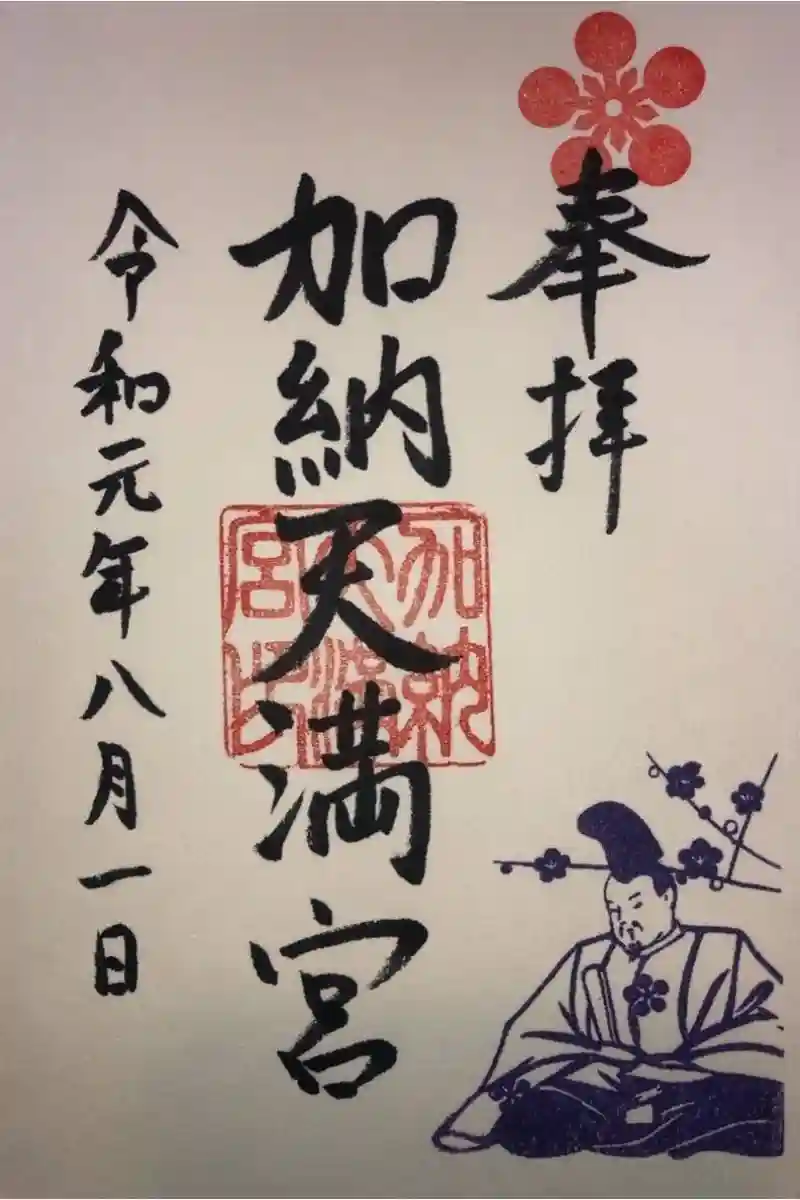 奉拝
加納天満宮
加納天満宮印
令和元年八月一日